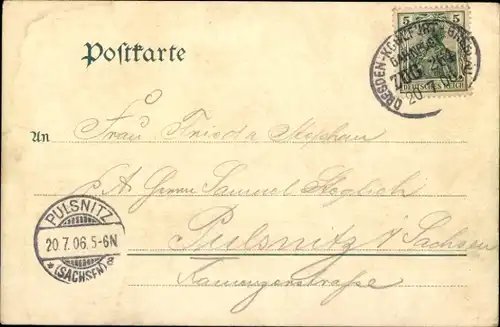 Postkarte
5 5
DEUTSCHES REICH
DRESDEN-
BAHNPOST
ZUG
20 7 06
An
Frau Frieda Stephan
Herrn Samuel
PULSNITZ
20.7.06.5-6N
*(SACHSEN)a
Pulsnitz i/Sachsen
Kamenzerstraße